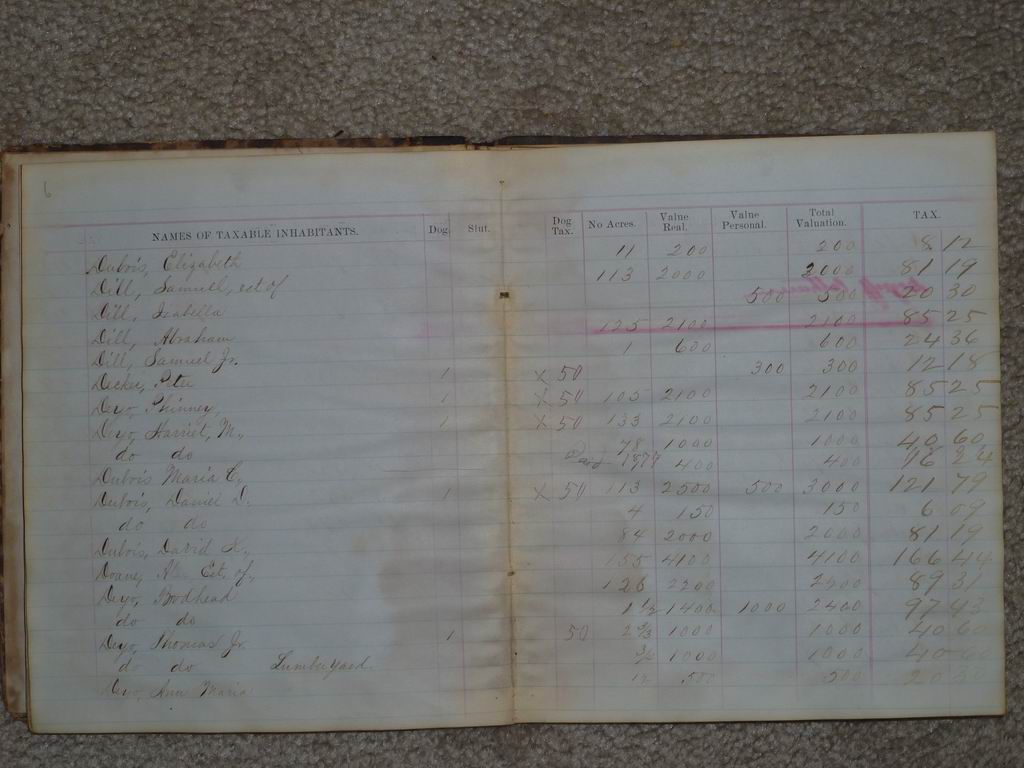 6
NAMES OF TAXABLE INHABITANTS. Dog. Slut. Dog Tax. No Acres. Value Real. Value Personal. Total Valuation. TAX.
Dubois, Elizabeth 11 200 200 8 12
Dill, Samuel, est of 113 2000 2000 81 19
Dill, Isabella 500 500 20 30
Dill, Abraham 125 2100 2100 85 25
Dill, Samuel Jr. 1 600 600 24 36
Decker, Peter 1 X 50 300 300 12 18
Deyo, Phinney, 1 X 50 105 2100 2100 85 25
Deyo, Harriet, M., 1 X 50 133 2100 2100 85 25
do do 78 1000 1000 40 60
Dubois Maria C., 400 400 16 24
Dubois, Daniel D. 1 X 50 113 2500 500 3000 121 79
do do 4 150 150 6 09
Dubois, David 84 2000 2000 81 19
Doane, Est. of, 155 4100 4100 166 44
Deyo, Brodhead 126 2200 2200 89 31
do do 1 1/2 1400 1000 2400 97 43
Deyo, Thomas Jr. 1 50 2 2/3 1000 1000 40 60
do do Lumberyard. 1000 1000 40 60
Deyo, Ann Maria 12 500 500 20 30